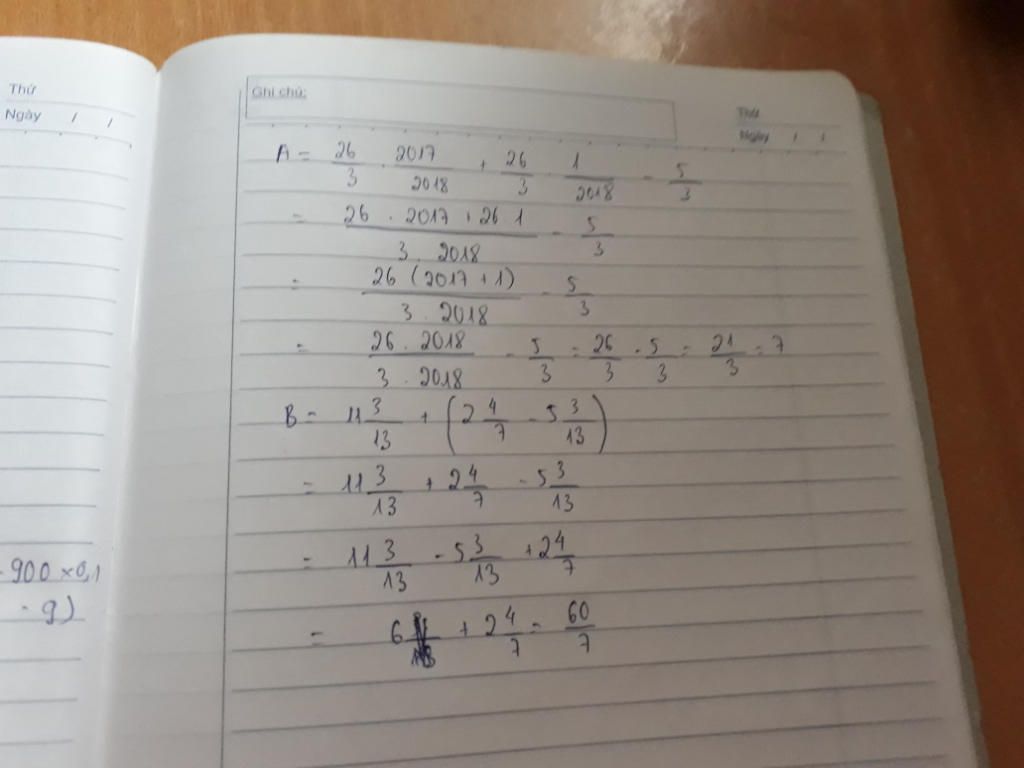 Thứ
Ngày / /
- 900 x 0,1
- g)
Ghi chú:
Thứ
Ngày / /
A = 26/3 . 2017/2018 + 26/3 . 1/2018 - 5/3
= (26 . 2017 + 26 . 1)/(3 . 2018) - 5/3
= 26 (2017 + 1)/(3 . 2018) - 5/3
= (26 . 2018)/(3 . 2018) - 5/3 = 26/3 - 5/3 = 21/3 = 7
B = 11 3/13 + (2 4/7 - 5 3/13)
= 11 3/13 + 2 4/7 - 5 3/13
= 11 3/13 - 5 3/13 + 2 4/7
= 6 + 2 4/7 = 60/7